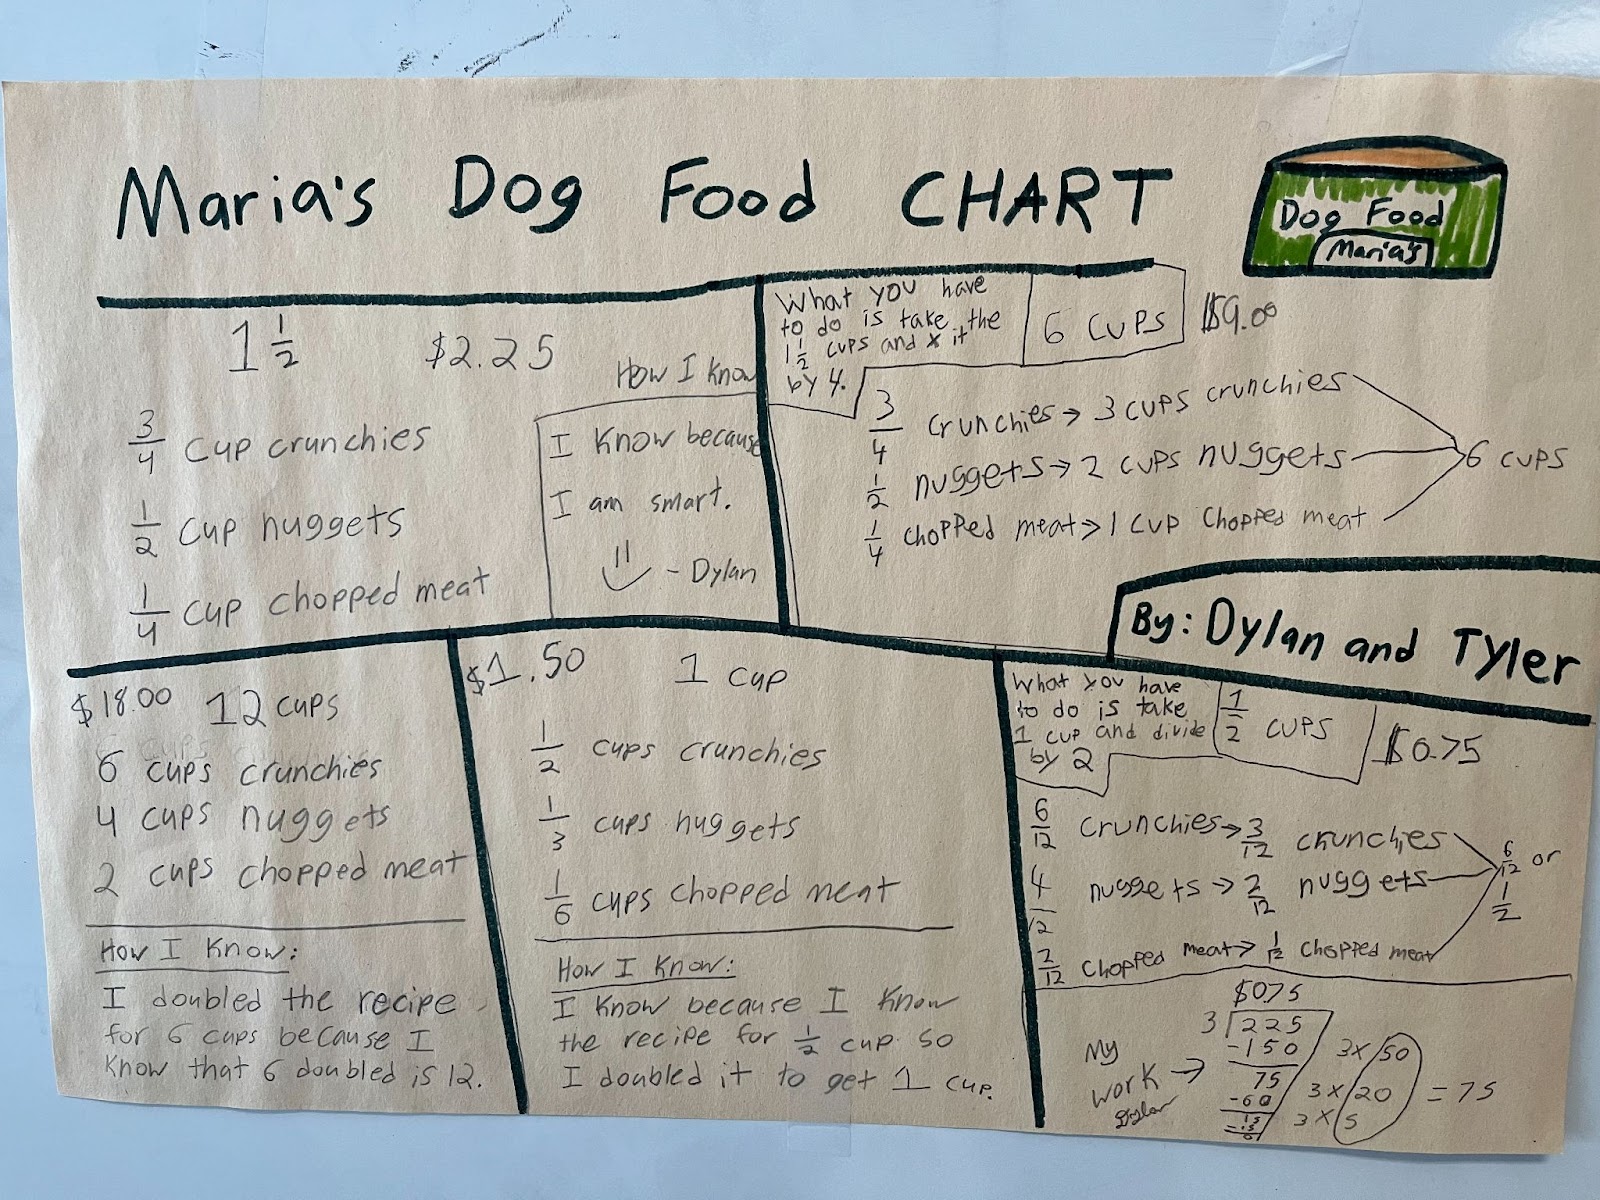 Maria's Dog Food CHART
Dog Food
Maria's
1 1/2
$2.25
3/4 cup crunchies
1/2 cup nuggets
1/4 cup chopped meat
How I know
I know because
I am smart.
- Dylan
What you have
to do is take the
1 1/2 cups and x it
by 4.
6 cups
$9.00
3/4 crunchies → 3 cups crunchies
1/2 nuggets → 2 cups nuggets
1/4 chopped meat → 1 cup chopped meat
6 cups
By: Dylan and Tyler
$18.00 12 cups
6 cups crunchies
4 cups nuggets
2 cups chopped meat
How I know:
I doubled the recipe
for 6 cups because I
know that 6 doubled is 12.
$1.50 1 cup
1/2 cups crunchies
1/3 cups nuggets
1/6 cups chopped meat
How I know:
I know because I know
the recipe for 1/2 cup so
I doubled it to get 1 cup.
What you have
to do is take
1 cup and divide
by 2
1/2 cups
$0.75
6/12 crunchies → 3/12 crunchies
4/12 nuggets → 2/12 nuggets
2/12 chopped meat → 1/12 chopped meat
6/12 or
1/2
My
work →
Dylan
$0.75
3 225
-150
75
-60
15
-15
0
3 x 50
3 x 20
3 x 5
= 75